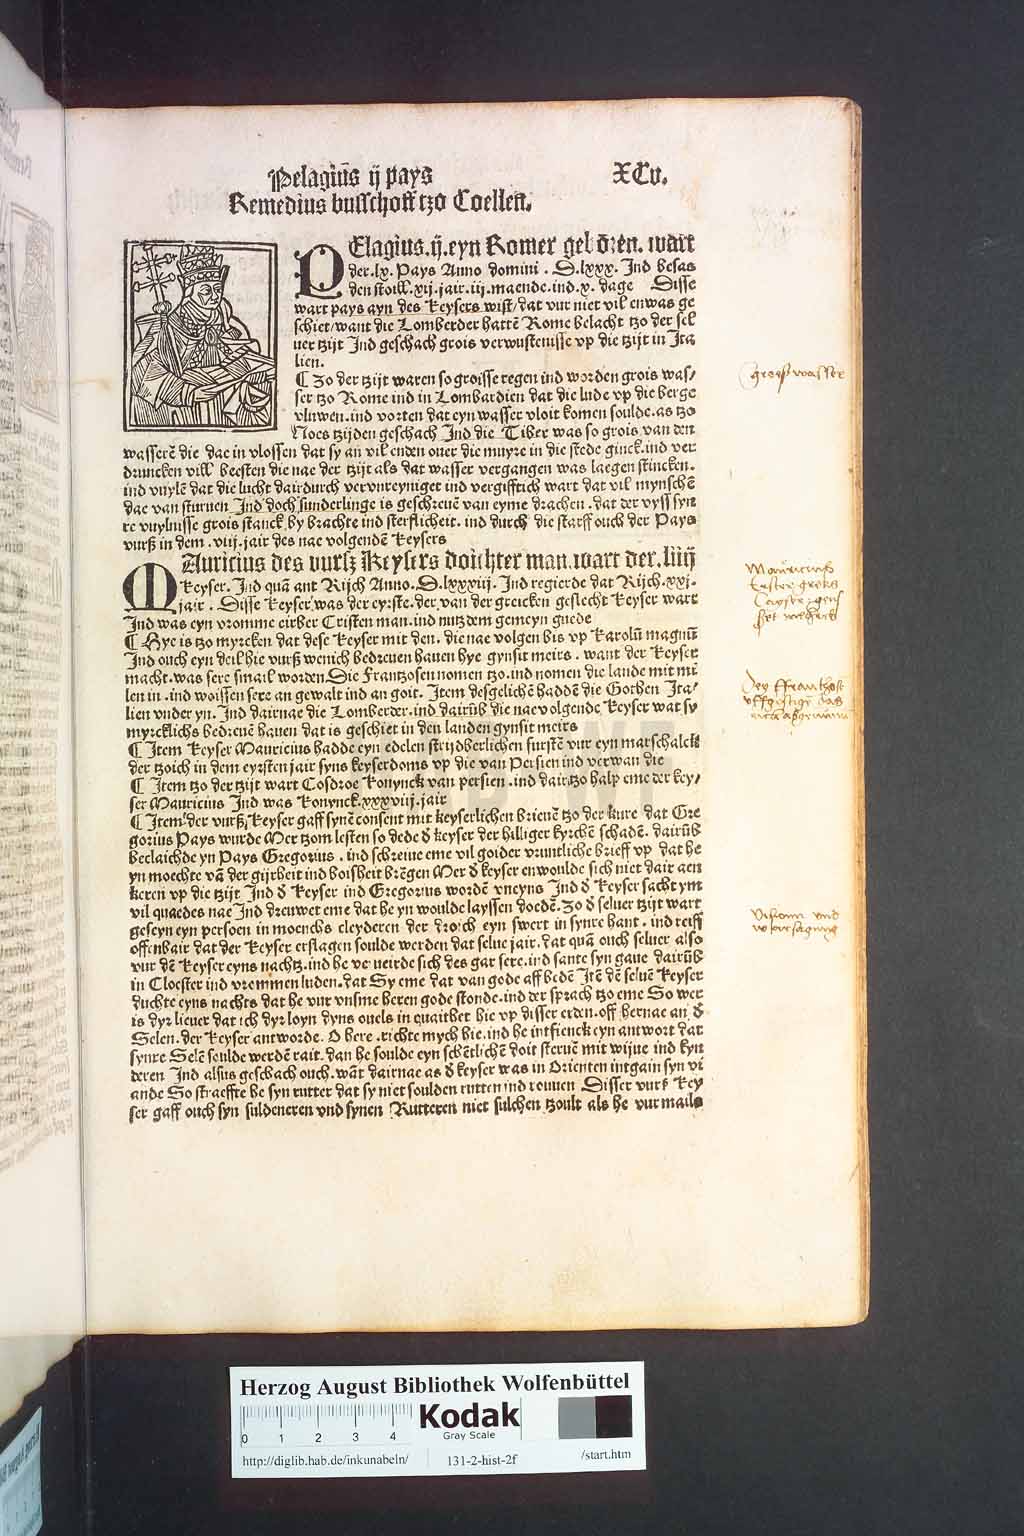 Pelagiūs ij pays XCv.
Remedius busschoff tzo Coellen.
PElagius.ij.eyn Romer geboren. wart
der.lx. Pays Anno domini . D.lxxx. Ind besas
den stoill.xij.jair.iij.maende.ind.x. dage Disse
wart pays ayn des keysers wist/dat vur niet vil enwas ge
schiet/want die Lomberder hattē Rome belacht tzo der sel
uer tzijt Ind geschach grois verwustenisse vp die tzijt in Ita
lien.
¶ Zo der tzijt waren so groisse regen ind worden grois was/
ser tzo Rome ind in Lombardien dat die lude vp die berge
vluwen.ind vorten dat eyn wasser vloit komen soulde.as tzo
Noes tzijden geschach Ind die Tiber was so grois van den
wasserē die dae in vlossen dat sy an vil enden ouer die muyre in die stede ginck.ind ver
druncken vill beesten die nae der tzijt als dat wasser vergangen was laegen stincken.
ind vuylē dat die lucht dairdurch vervnreyniget ind vergifftich wart dat vil mynschē
dae van sturuen Ind doch sunderlinge is geschreuē van eyme drachen.dat der vyss syn
re vuylnisse grois stanck by brachte ind sterflicheit.ind durch die starff ouch der Pays
vurß in dem.viij.jair des nae volgendē keysers
MAuricius des vursz Keysers doichter man.wart der.liiij
keyser.Ind quā ant Rijch Anno.D.lxxxiiij.Ind regierde dat Rijch.xxj.
jair . Disse keyser was der eyrste.der van der greicken geslecht keyser wart
Ind was eyn vromme eirber Cristen man.ind nutz dem gemeyn guede
¶ Hye is tzo myrcken dat dese keyser mit den.die nae volgen bis vp karolū magnū
Ind ouch eyn deil hie vurß wenich bedreuen hauen hye gynsit meirs.want der keyser
macht.was sere smail worden.Die Frantzosen nomen tzo.ind nomen die lande mit mi
len in.ind woissen sere an gewalt ind an goit. Item desgelichē haddē die Gothen Ita/
lien vnder yn. Ind dairnae die Lomberder.ind dairūb die nae volgende keyser wat sy
myrcklichs bedreuē hauen dat is geschiet in den landen gynsit meirs
¶ Item keyser Mauricius hadde eyn edelen strijdberlichen furstē vur eyn marschalck
der tzoich in dem eyrsten jair syns keyserdoms vp die van Persien ind verwan die
¶ Item tzo der tzijt wart Cosdroe konynck van persien.ind dair tzo halp eme der key/
ser Mauricius Ind was konynck.xxxviij.jair
¶ Item der vurß keyser gaff synē consent mit keyserlichen brieuē tzo der kure dat Gre
gorius Pays wurde Mer tzom lesten so dede d̄ keyser der hilliger kyrchē schadē. dairūb
beclaichde yn Pays Gregorius.ind schreiue eme vil goider vruntliche brieff vp dat he
yn moechte vā der gijrheit ind boisheit brēgen Mer d̄ keyser enwoulde sich niet dair aen
keren vp die tzijt Ind d̄ keyser ind Gregorius wordē vneyns Ind d̄ keyser sacht ym
vil quaedes nae Ind dreuwet eme dat he yn woulde layssen doedē.Zo d̄ seluer tzijt wart
geseyn eyn persoen in moenchs cleyderen der droich eyn swert in synre hant.ind reiff
offenbair dat der keyser erslagen soulde werden dat selue jair.dat quā ouch seluer also
vur dē keyser eyns nachtz.ind he verueirde sich des gar sere.ind sante syn gaue dairūb
in Cloester ind vremmen luden.dat Sy eme dat van gode aff bedē Itē dē seluē keyser
duchte eyns nachts dat he vur vnsme heren gode stonde.ind der sprach tzo eme So wer
is dyr lieuer dat ich dyr loyn dyns ouels in quaitheit hie vp disser erden.off hernae an d̄
Selen.der keyser antworde. O here.richte mych hie.ind he intfienck eyn antwort dat
synre Selē soulde werdē rait.dan he soulde eyn schētlichē doit steruē mit wijue ind kyn
deren Ind alsus geschach ouch.wāt dairnae as d̄ keyser was in Orienten intgain syn vi
ande So straeffte he syn rutter dat sy niet soulden rutten ind rouuen Disser vurß key
ser gaff ouch syn suldeneren vnd synen Rutteren niet sulchen tzoult als he vurmails
groß wasser
Mauricius
Erster greks
Visionn vnd
worsagung
Herzog August Bibliothek Wolfenbüttel
0 1 2 3 4
Kodak
Gray Scale
http://diglib.hab.de/inkunabeln/ 131-2-hist-2f /start.htm